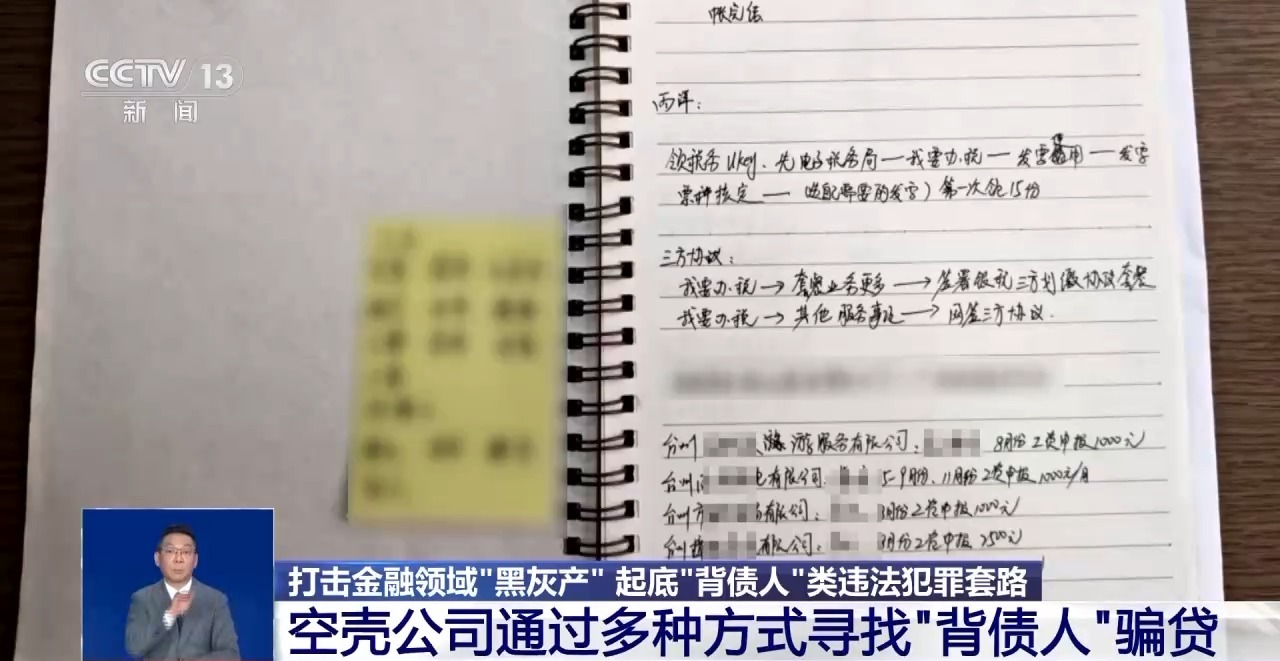 CCTV 13
新闻
帐完信
雨洋：
领税务Ukey、先电子税务局—我要办税—发票使用—发票
票种核定—选配需要的发票）第一次领15份
三方协议：
我要办税→套餐业务更多→签署银税三方划缴协议套餐
我要办税→其他服务事项→网签三方协议.
台州 游服务有限公司： 8月份工资申报1000元
台州 有限公司： 5-9月份、11月份工资申报1000元/月
台州方 有限公司： 8月份工资申报1000元
台州 有限公司： 8月份工资申报2500元
打击金融领域"黑灰产" 起底"背债人"类违法犯罪套路
空壳公司通过多种方式寻找"背债人"骗贷